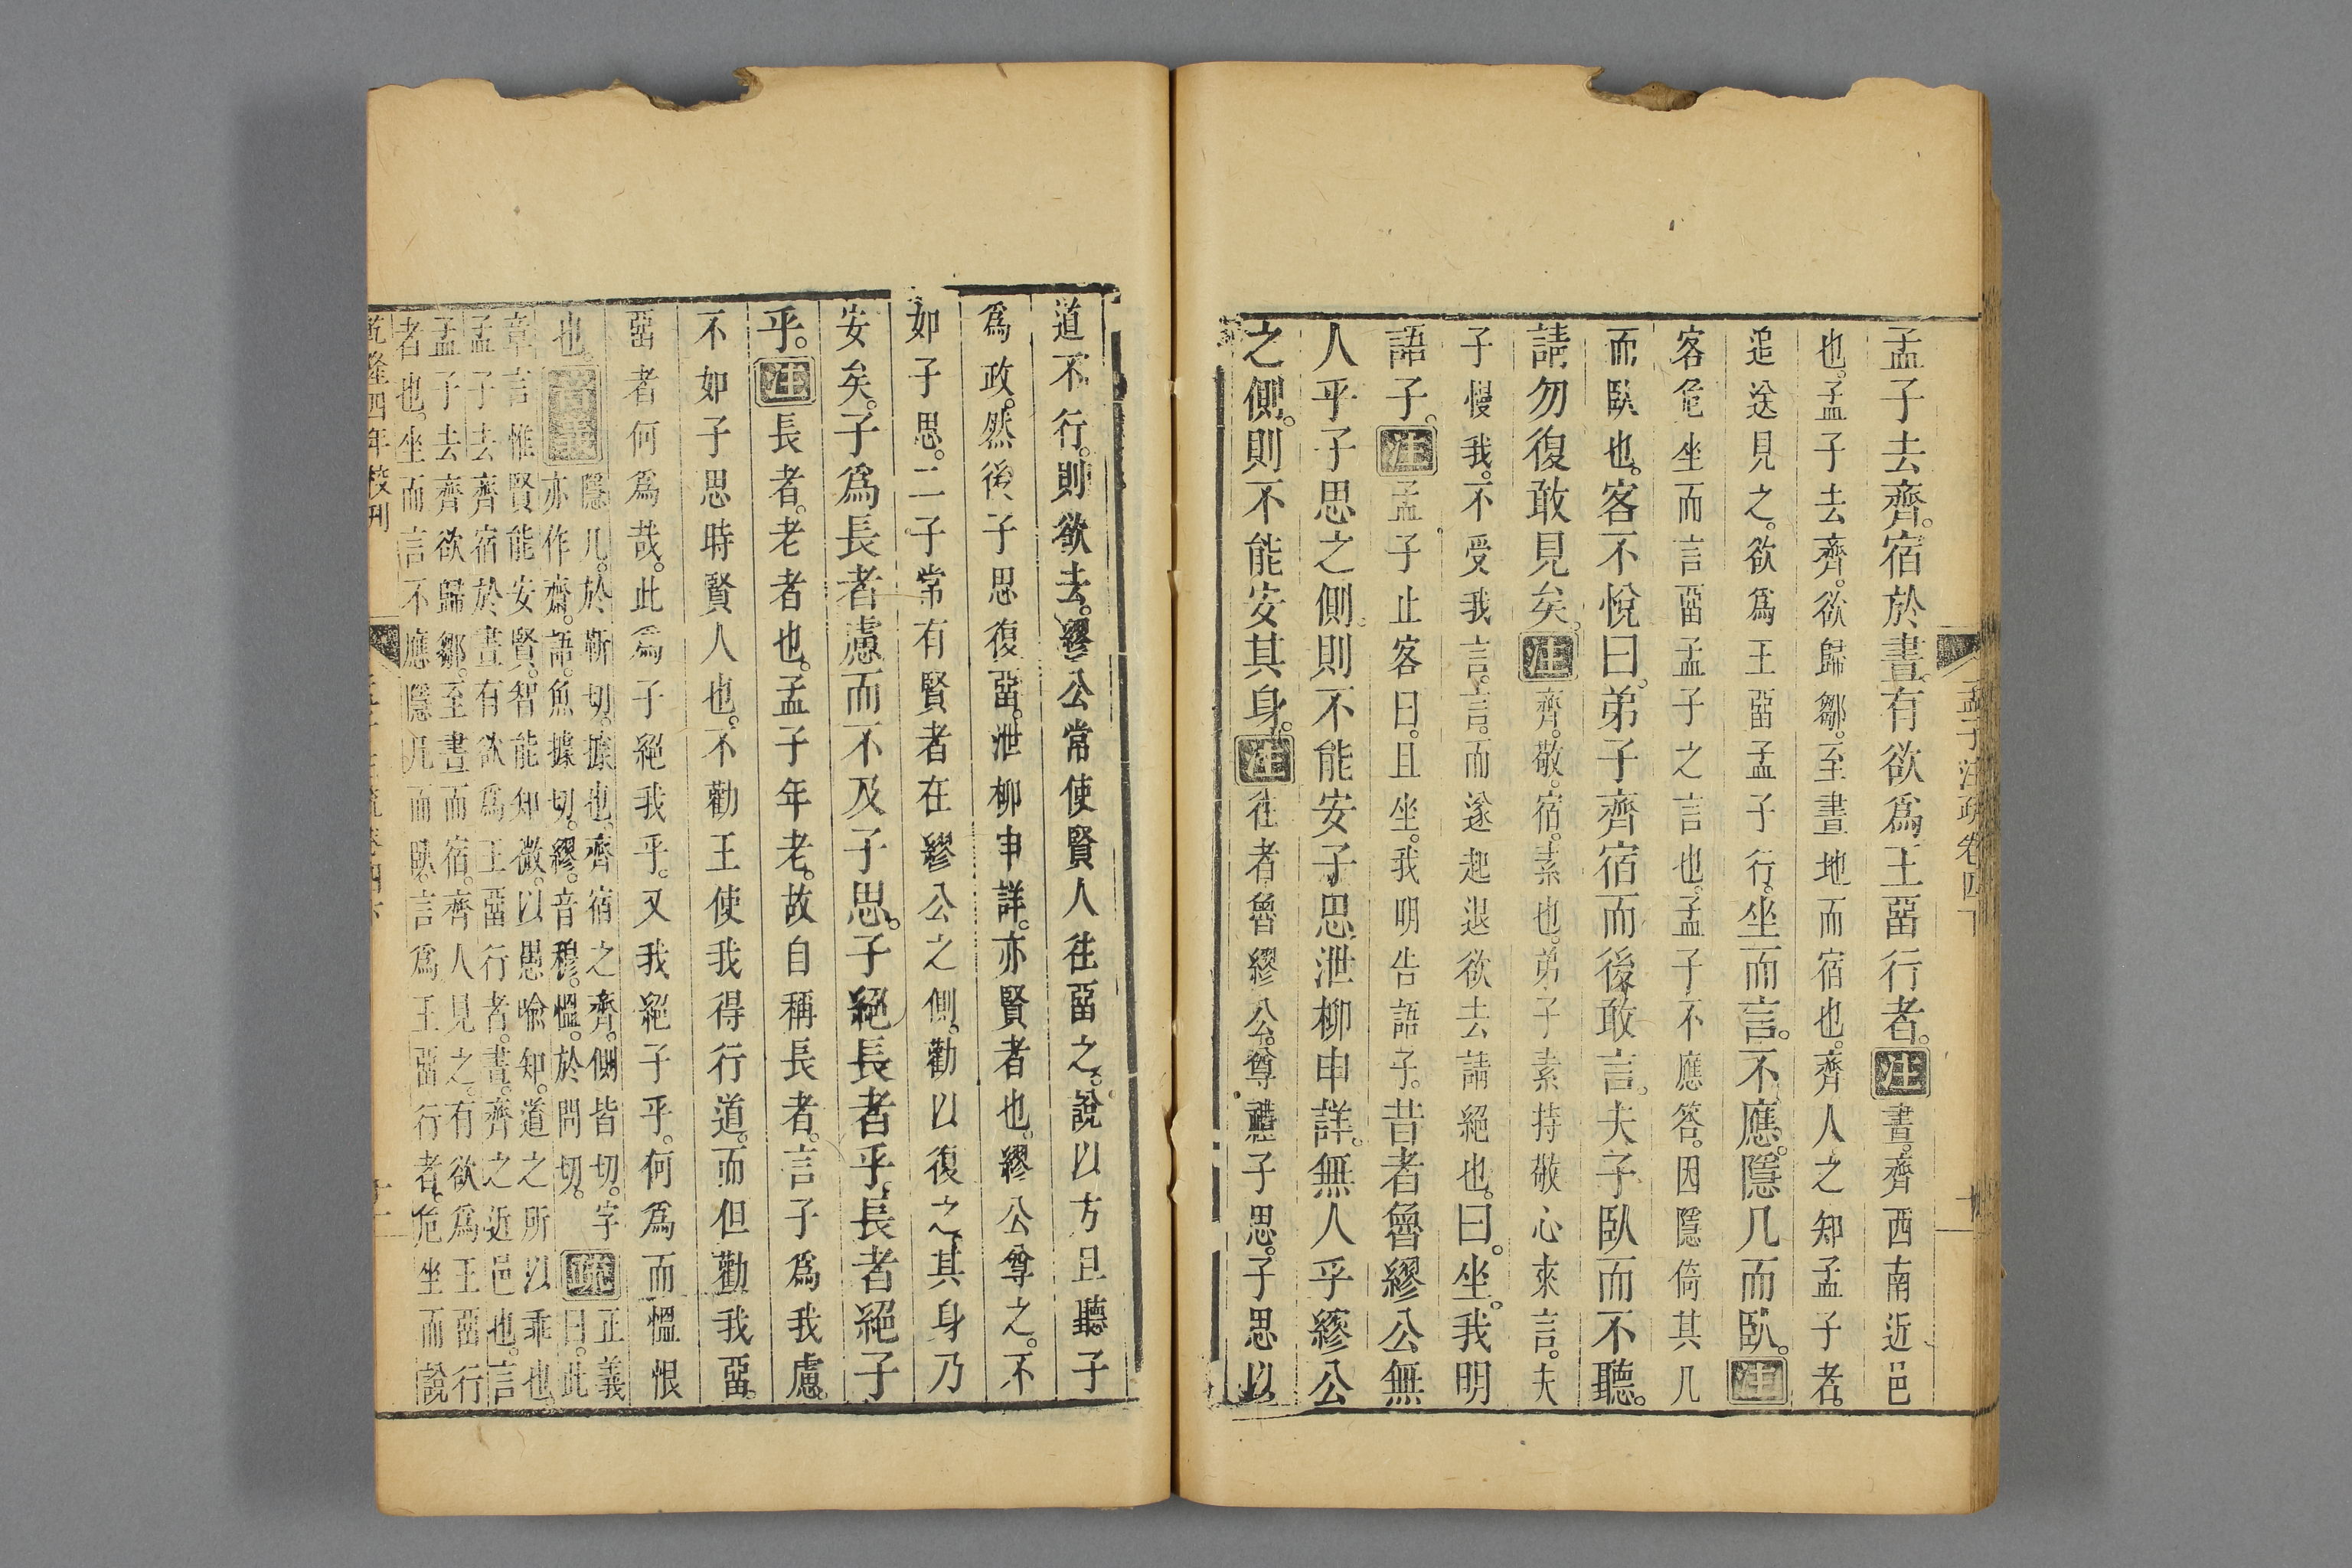 孟子注疏卷四下
孟子去齊。宿於晝。有欲爲王畱行者。注晝。齊西南近邑
也。孟子去齊。欲歸鄒。至晝地而宿也。齊人之知孟子者。
追送見之。欲爲王畱孟子行。坐而言。不應。隱几而臥。注
客危坐而言畱孟子之言也。孟子不應答。因隱倚其几
而臥也。客不悅曰。弟子齊宿而後敢言。夫子臥而不聽。
請勿復敢見矣。注齊。敬。宿。素也。弟子素持敬心來言。夫
子慢我。不受我言。言。而遂起退欲去請絕也。曰。坐。我明
語子。注孟子止客曰。且坐。我明告語子。昔者魯繆公無
人乎子思之側則不能安子思。泄柳申詳。無人乎繆公
之側。則不能安其身。注往者魯繆公。尊禮子思。子思以
道不行。則欲去。繆公常使賢人往畱之。說以方且聽子
爲政。然後子思復畱。泄柳申詳。亦賢者也。繆公尊之。不
如子思。二子常有賢者在繆公之側。勸以復之。其身乃
安矣。子爲長者慮而不及子思。子絕長者乎。長者絕子
乎。注長者。老者也。孟子年老。故自稱長者。言子爲我慮。
不如子思時賢人也。不勸王使我得行道。而但勸我畱。
畱者何爲哉。此爲子絕我乎。又我絕子乎。何爲而慍恨
也。音義隱几。於靳切。據也。齊宿之齊。側皆切。字
亦作齋。語。魚據切。繆。音穆。慍。於問切。疏正義
曰。此
章言惟賢能安賢。智能知微。以愚喻知。道之所以乖也。
孟子去齊宿於晝有欲爲王畱行者。晝。齊之近邑也。言
孟子去齊欲歸鄒。至晝而宿。齊人見之。有欲爲王畱行
者也。坐而言不應隱几而臥。言爲王畱行者。危坐而說
乾隆四年校刊